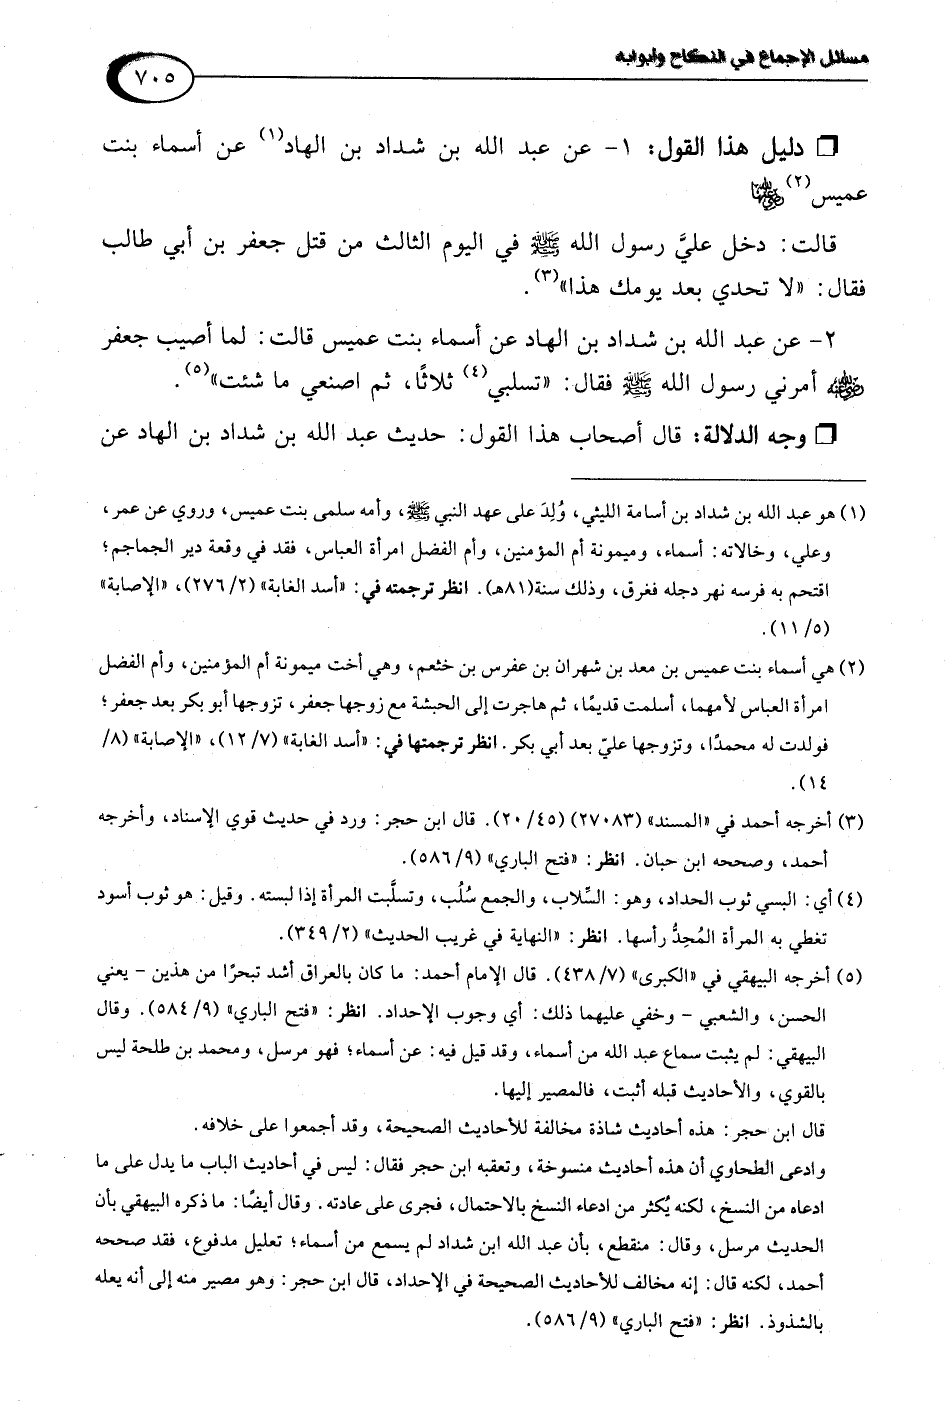 مسائل الإجماع في النكاح وأبوابه
٧٠٥
❒ دليل هذا القول: ١- عن عبد الله بن شداد بن الهاد(١) عن أسماء بنت
عميس(٢) رضي الله عنها
قالت: دخل عليَّ رسول الله ﷺ في اليوم الثالث من قتل جعفر بن أبي طالب
فقال: «لا تحدي بعد يومك هذا»(٣).
٢- عن عبد الله بن شداد بن الهاد عن أسماء بنت عميس قالت: لما أصيب جعفر
رضي الله عنه أمرني رسول الله ﷺ فقال: «تسلبي(٤) ثلاثًا، ثم اصنعي ما شئت»(٥).
❒ وجه الدلالة: قال أصحاب هذا القول: حديث عبد الله بن شداد بن الهاد عن
(١) هو عبد الله بن شداد بن أسامة الليثي، وُلِدَ على عهد النبي ﷺ، وأمه سلمى بنت عميس، وروي عن عمر،
وعلي، وخالاته: أسماء، وميمونة أم المؤمنين، وأم الفضل امرأة العباس، فقد في وقعة دير الجماجم؛
اقتحم به فرسه نهر دجله فغرق، وذلك سنة(٨١هـ). انظر ترجمته في: «أسد الغابة» (٢٧٦/٢)، «الإصابة»
(١١/٥).
(٢) هي أسماء بنت عميس بن معد بن شهران بن عفرس بن خثعم، وهي أخت ميمونة أم المؤمنين، وأم الفضل
امرأة العباس لأمهما، أسلمت قديمًا، ثم هاجرت إلى الحبشة مع زوجها جعفر، تزوجها أبو بكر بعد جعفر؛
فولدت له محمدًا، وتزوجها عليّ بعد أبي بكر. انظر ترجمتها في: «أسد الغابة» (١٢/٧)، «الإصابة» (٨/
١٤).
(٣) أخرجه أحمد في «المسند» (٢٧٠٨٣) (٢٠/٤٥). قال ابن حجر: ورد في حديث قوي الإسناد، وأخرجه
أحمد، وصححه ابن حبان. انظر: «فتح الباري» (٥٨٦/٩).
(٤) أي: البسي ثوب الحداد، وهو: السِّلاب، والجمع سُلُب، وتسلَّبت المرأة إذا لبسته. وقيل: هو ثوب أسود
تغطي به المرأة المُحِدُّ رأسها. انظر: «النهاية في غريب الحديث» (٣٤٩/٢).
(٥) أخرجه البيهقي في «الكبرى» (٤٣٨/٧). قال الإمام أحمد: ما كان بالعراق أشد تبحرًا من هذين - يعني
الحسن، والشعبي - وخفي عليهما ذلك: أي وجوب الإحداد. انظر: «فتح الباري» (٥٨٤/٩). وقال
البيهقي: لم يثبت سماع عبد الله من أسماء، وقد قيل فيه: عن أسماء؛ فهو مرسل، ومحمد بن طلحة ليس
بالقوي، والأحاديث قبله أثبت، فالمصير إليها.
قال ابن حجر: هذه أحاديث شاذة مخالفة للأحاديث الصحيحة، وقد أجمعوا على خلافه.
وادعى الطحاوي أن هذه أحاديث منسوخة، وتعقبه ابن حجر فقال: ليس في أحاديث الباب ما يدل على ما
ادعاه من النسخ، لكنه يُكثر من ادعاء النسخ بالاحتمال، فجرى على عادته. وقال أيضًا: ما ذكره البيهقي بأن
الحديث مرسل، وقال: منقطع، بأن عبد الله ابن شداد لم يسمع من أسماء؛ تعليل مدفوع، فقد صححه
أحمد، لكنه قال: إنه مخالف للأحاديث الصحيحة في الإحداد، قال ابن حجر: وهو مصير منه إلى أنه يعله
بالشذوذ. انظر: «فتح الباري» (٥٨٦/٩).